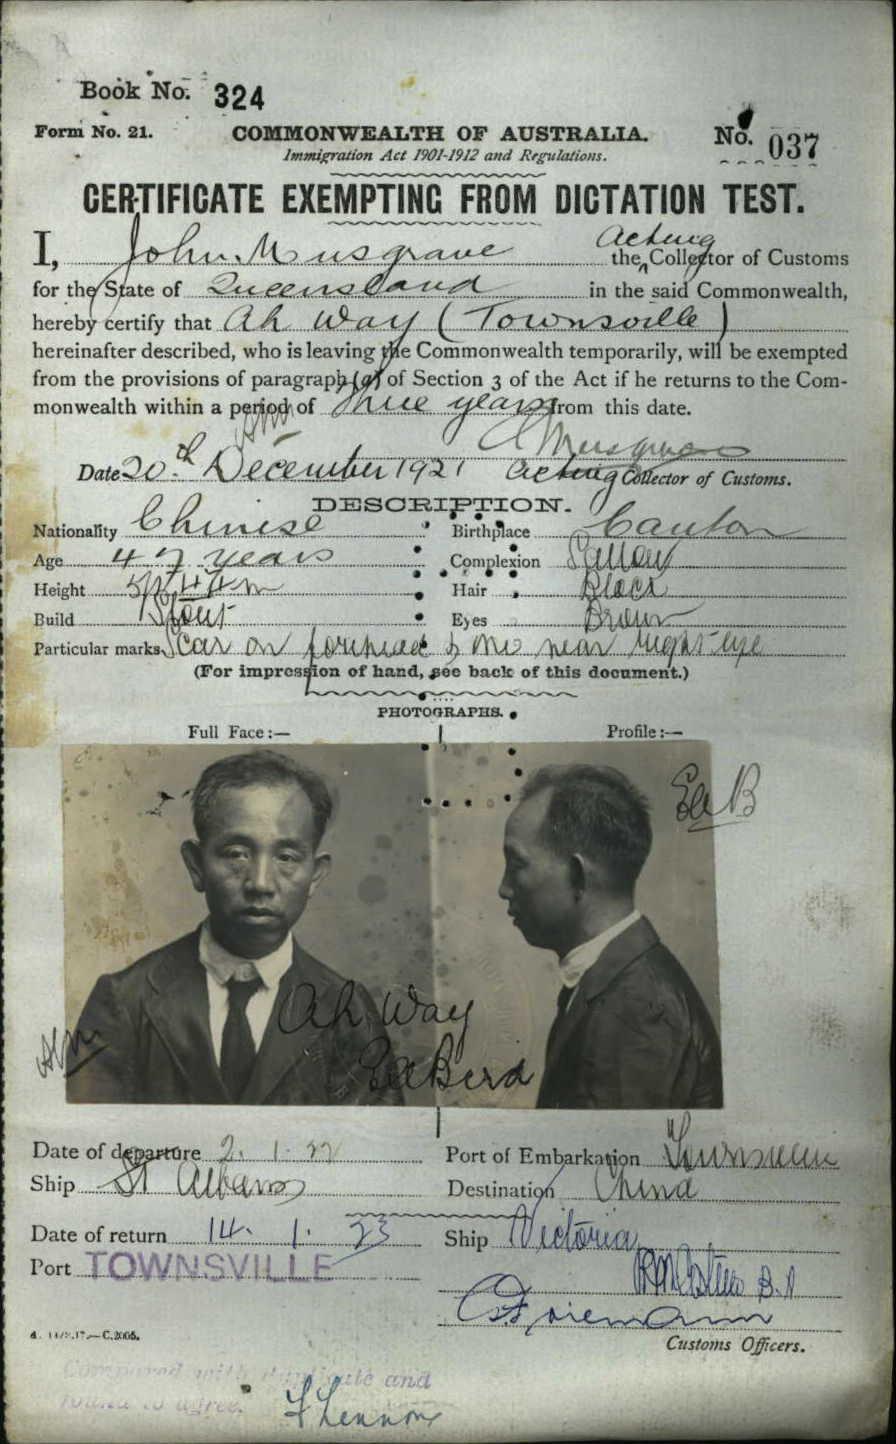 Book No. 324
Form No. 21. COMMONWEALTH OF AUSTRALIA. No. 037
Immigration Act 1901-1912 and Regulations.
CERTIFICATE EXEMPTING FROM DICTATION TEST.
I, John Musgrave the Acting Collector of Customs
for the State of Queensland in the said Commonwealth,
hereby certify that Ah Way (Townsville)
hereinafter described, who is leaving the Commonwealth temporarily, will be exempted
from the provisions of paragraph (a) of Section 3 of the Act if he returns to the Com-
monwealth within a period of Three years from this date.
Musgrave
Date 20th December 1921 Acting Collector of Customs.
DESCRIPTION.
Nationality Chinese Birthplace Canton
Age 47 years Complexion Sallow
Height 5ft Hair Black
Build Stout Eyes Brown
Particular marks Scar on forehead & one near right eye
(For impression of hand, see back of this document.)
PHOTOGRAPHS.
Full Face:— Profile:—
Ah Way
Bird
Date of departure 2. 1. 22 Port of Embarkation Townsville
Ship St Albans Destination China
Date of return 14. 1. 23 Ship Victoria
Port TOWNSVILLE
Customs Officers.
Compared with duplicate and
found to agree.
Lennon